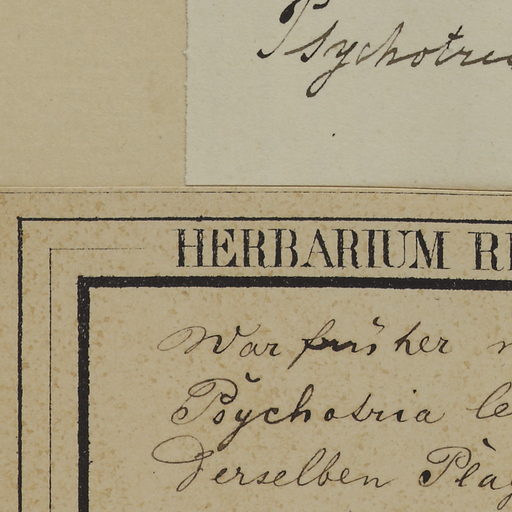 Psychotri
HERBARIUM R
War früher
Psychotria le
derselben Plag